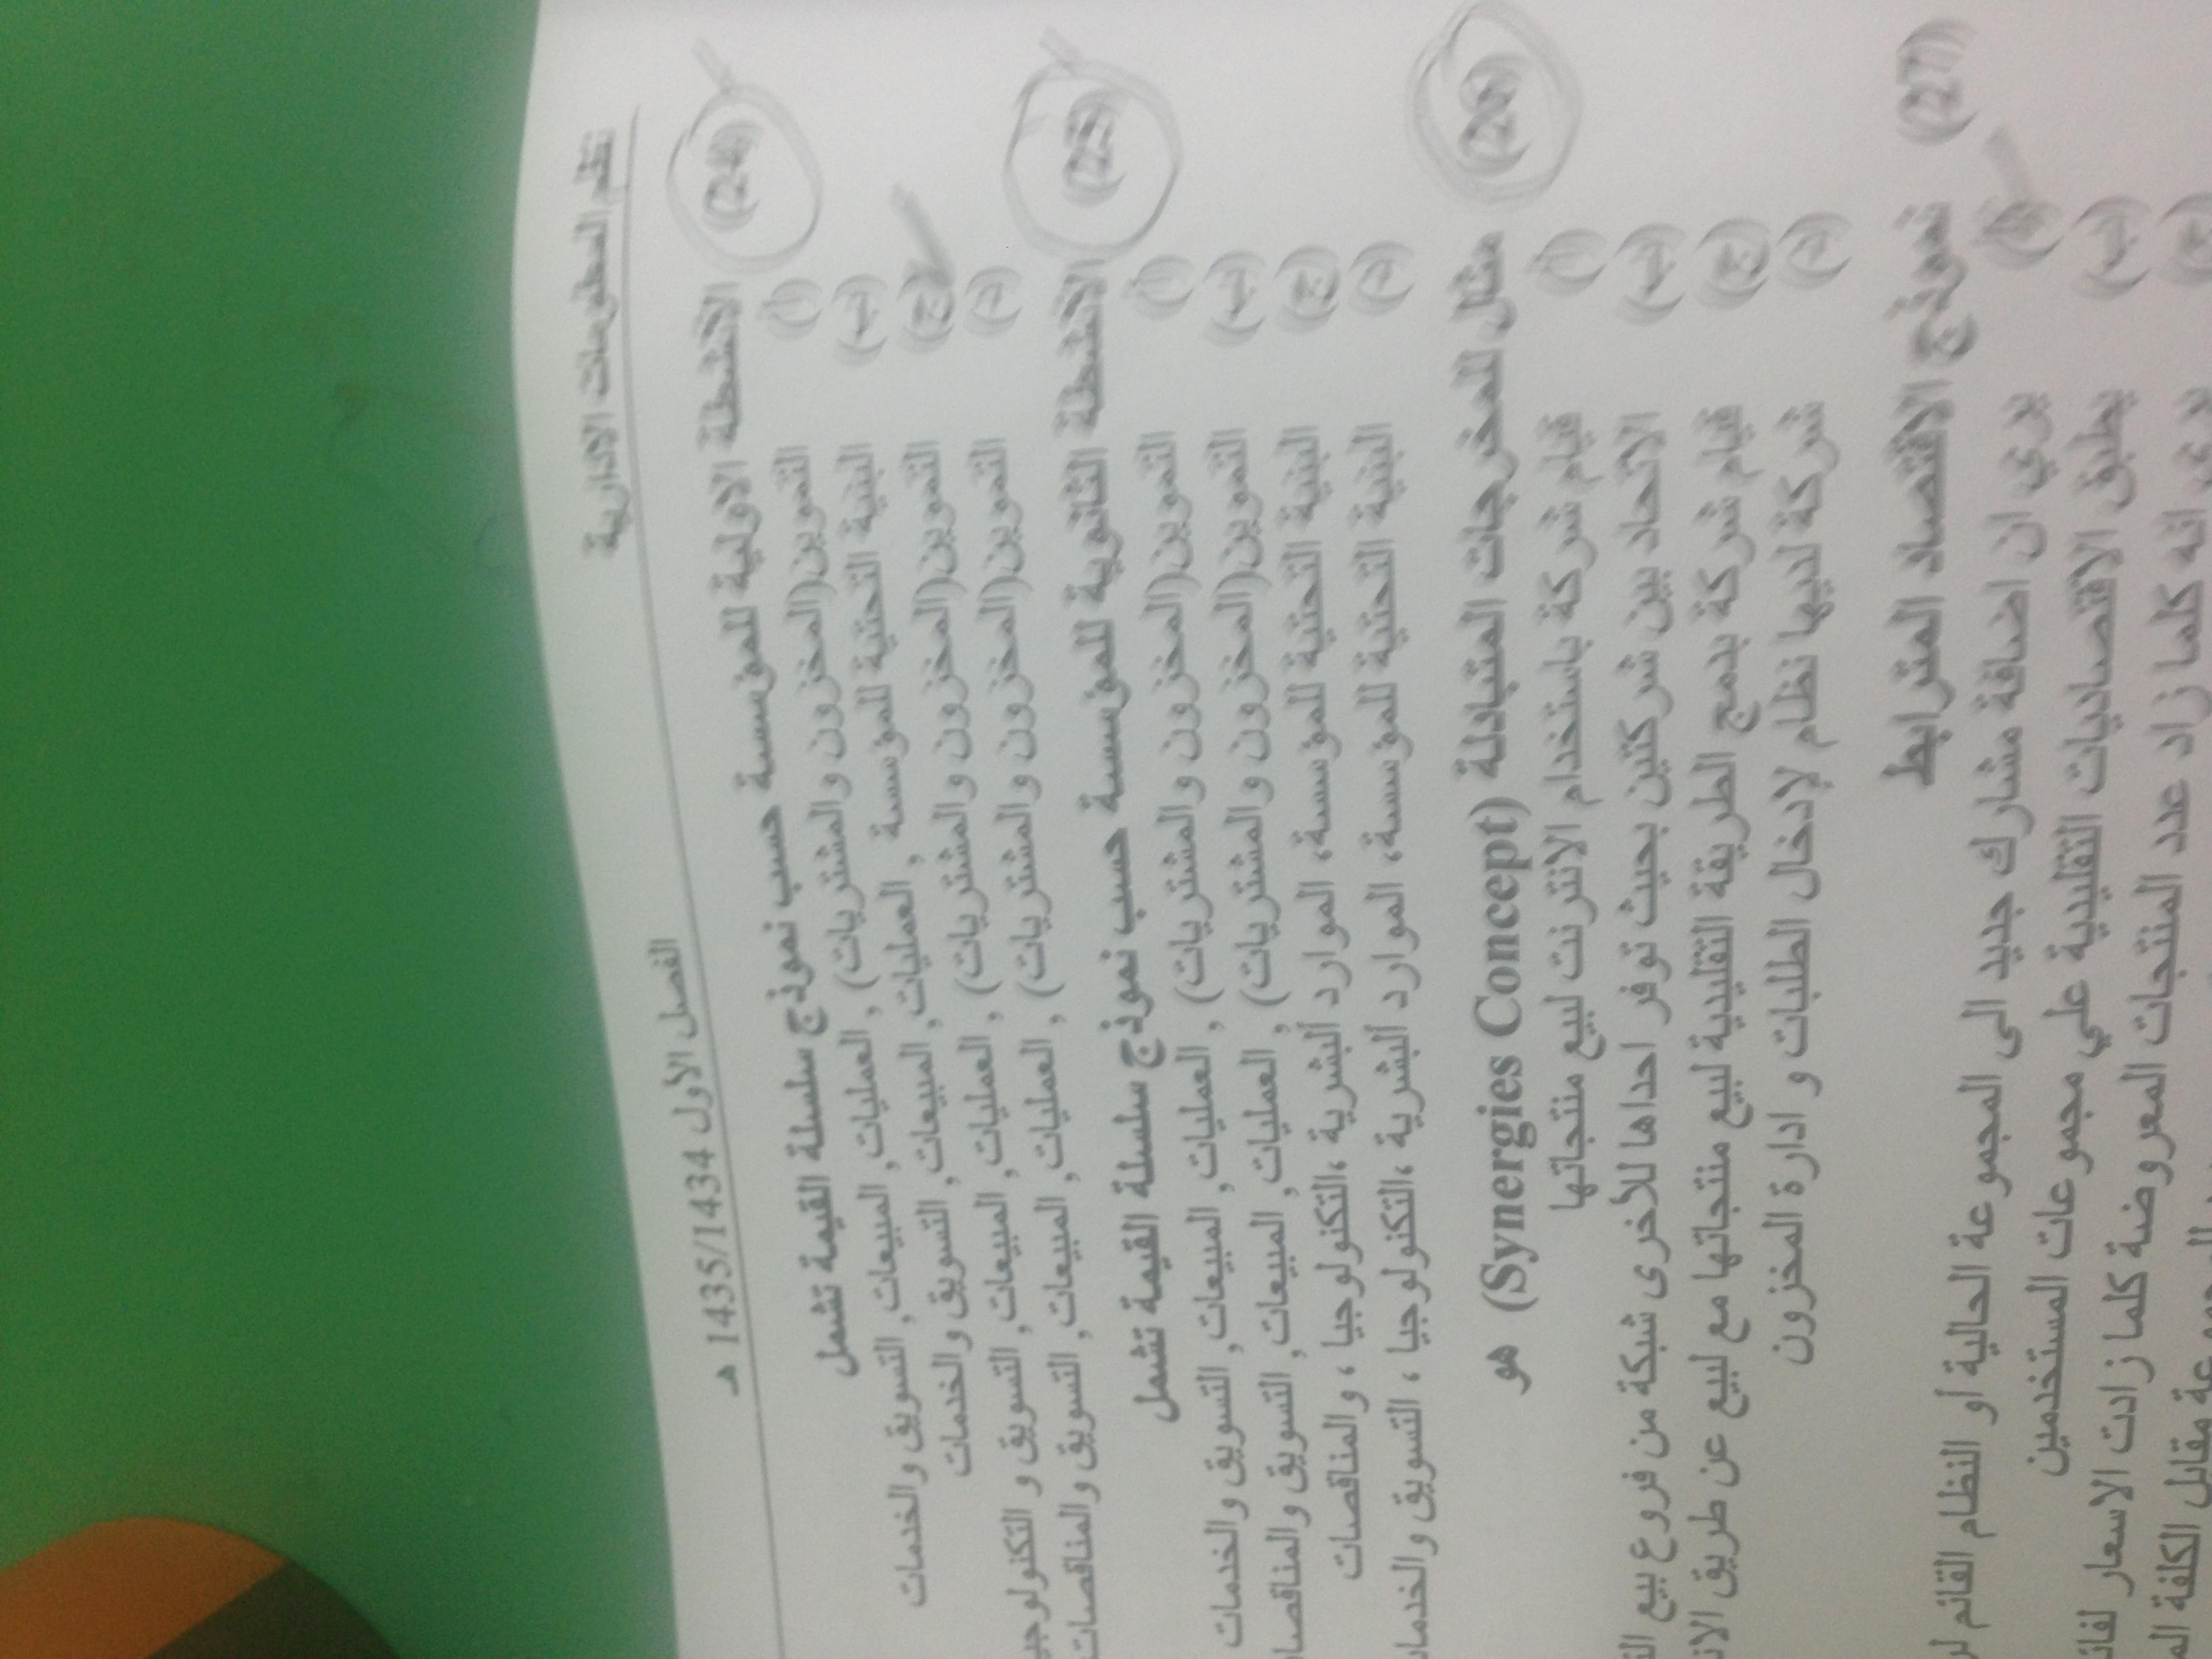 نظم المعلومات الادارية
الفصل الأول 1435/1434 هـ
(24) الانشطة الاولية للمؤسسة حسب نموذج سلسلة القيمة تشمل
(أ) التموين(المخزون والمشتريات) , العمليات, المبيعات, التسويق والخدمات
(ب) البنية التحتية للمؤسسة , العمليات, المبيعات, التسويق والخدمات
(ج) التموين(المخزون والمشتريات) , العمليات, المبيعات, التسويق و
(د) التموين(المخزون والمشتريات) , العمليات, المبيعات, التسويق والمناقصات
(25) الانشطة الثانوية للمؤسسة حسب نموذج سلسلة القيمة تشمل
(أ) التموين(المخزون والمشتريات) , العمليات, المبيعات, التسويق والخدمات
(ب) التموين(المخزون والمشتريات) , العمليات, المبيعات, التسويق
(ج) البنية التحتية للمؤسسة، الموارد البشرية ،التكنولوجيا ، والمناقصات
(د) البنية التحتية للمؤسسة، الموارد البشرية ،التكنولوجيا ، التسويق
(26) مثال للمخرجات المتبادلة (Synergies Concept) هو
(أ) قيام شركة باستخدام الانترنت لبيع منتجاتها
(ب) الاتحاد بين شركتين بحيث توفر احداها للأخرى شبكة من فروع بيع
(ج) قيام شركة بدمج الطريقة التقليدية لبيع منتجاتها مع لبيع عن طريق
(د) شركة لديها نظام لإدخال الطلبات و ادارة المخزون
(27) نموذج الاقتصاد المترابط
(أ) يري ان اضافة مشارك جديد الى المجموعة الحالية أو النظام القائم
(ب) يطبق الاقتصاديات التقليدية علي مجموعات المستخدمين
(ج) يرى انه كلما زاد عدد المنتجات المعروضة كلما زادت الاسعار
مقابل الكلفة